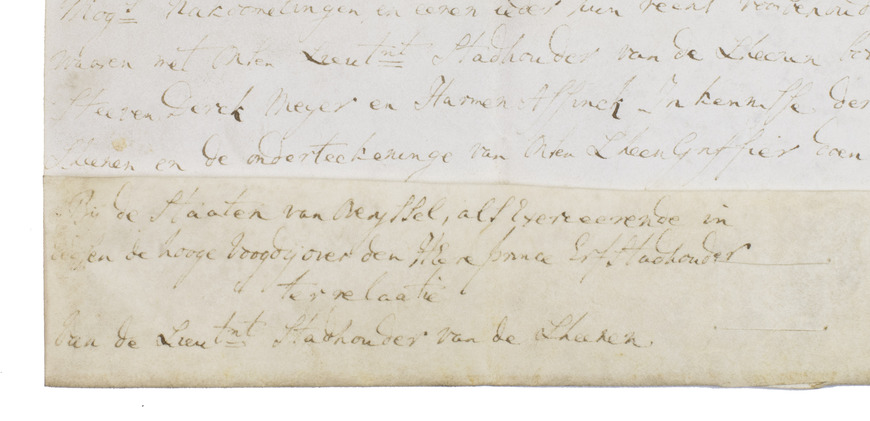 Mog.s Nakoomelingen, en eeren ider zijn recht voorbehoud
Waaren met Onsen Lieut.nt Stadhouder van de Lheenen
Steeven Derck Meyer en Harmen Assinck In kennisse der
Lheenen en de onderteekeninge van Onsen Lheen Griffier
Bij de Staaten van Overyssel, als Exerceerende in
deesen de hooge Voogdij over den Heere prince Erf Stadhouder
ter relaatie
Van de Lieut.nt Stadhouder van de Lheenen.